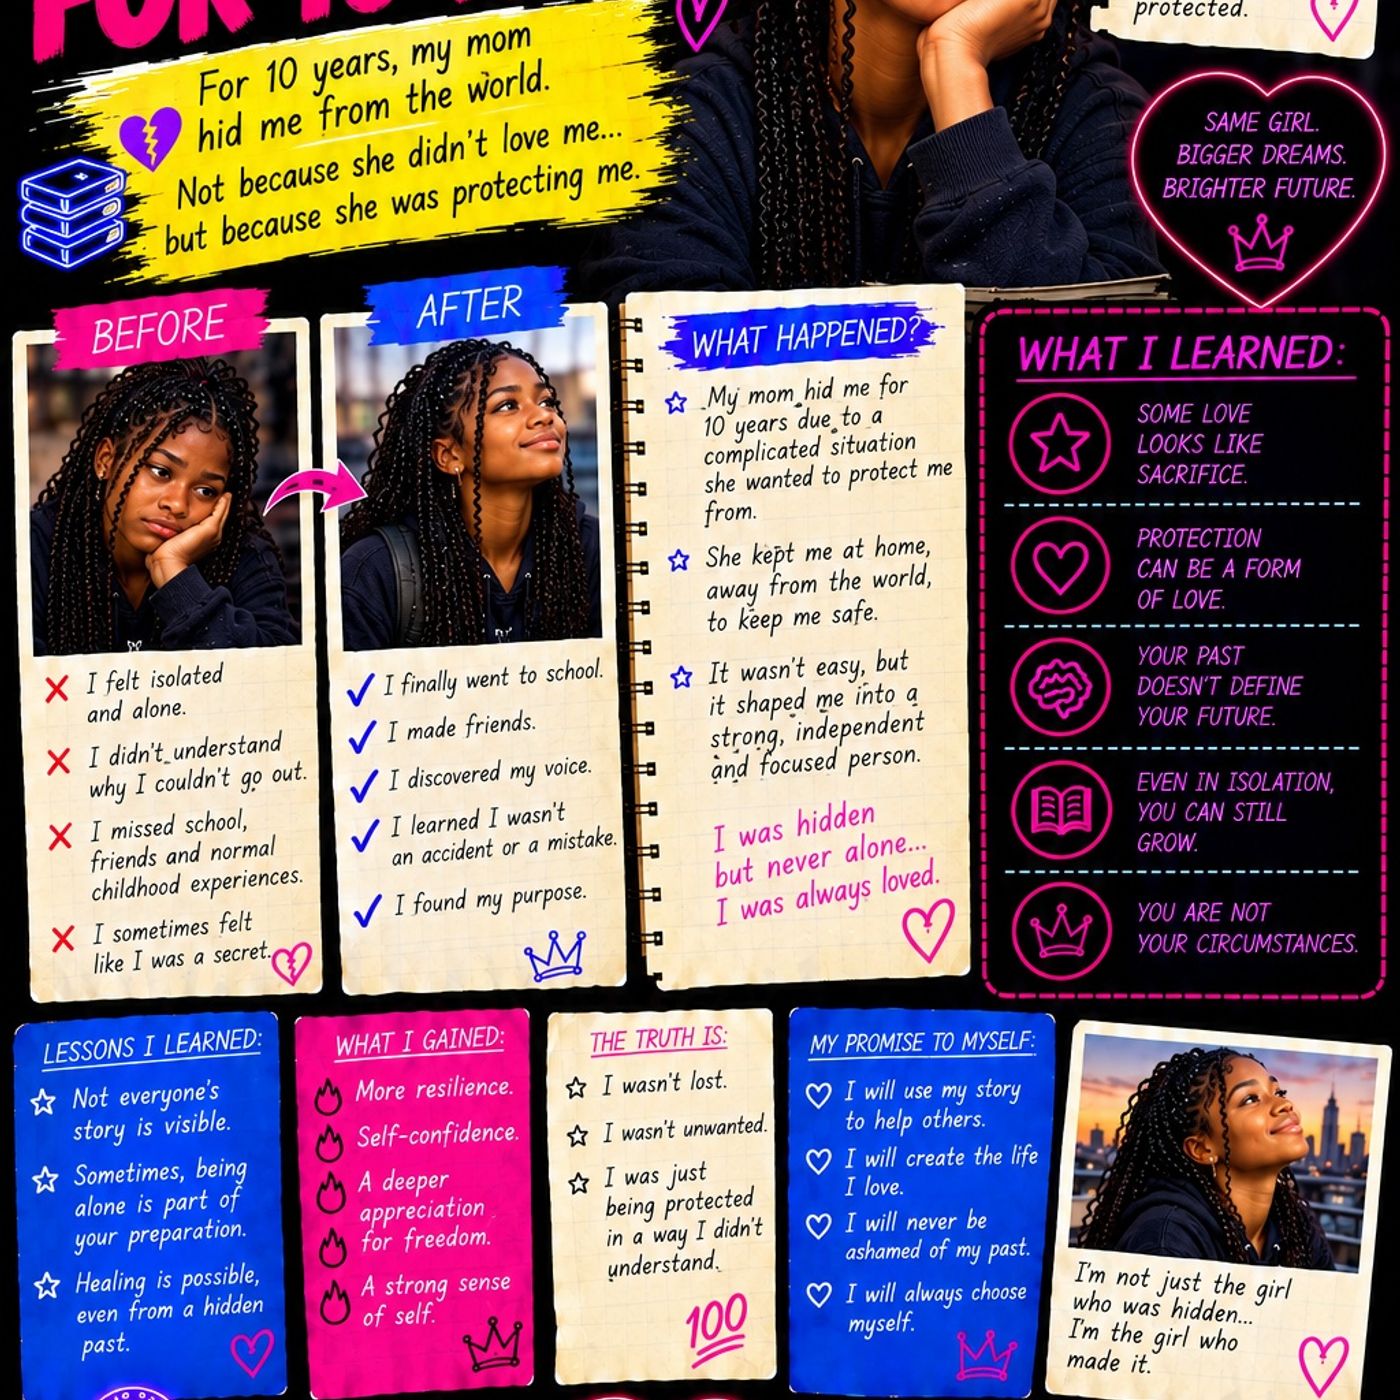 FOR 10
protected.
For 10 years, my mom
hid me from the world.
Not because she didn't love me...
but because she was protecting me.
SAME GIRL.
BIGGER DREAMS.
BRIGHTER FUTURE.
BEFORE
I felt isolated
and alone.
I didn't understand
why I couldn't go out.
I missed school,
friends and normal
childhood experiences.
I sometimes felt
like I was a secret.
AFTER
I finally went to school.
I made friends.
I discovered my voice.
I learned I wasn't
an accident or a mistake.
I found my purpose.
WHAT HAPPENED?
My mom hid me for
10 years due to a
complicated situation
she wanted to protect me
from.
She kept me at home,
away from the world,
to keep me safe.
It wasn't easy, but
it shaped me into a
strong, independent
and focused person.
I was hidden
but never alone...
I was always loved.
WHAT I LEARNED:
SOME LOVE
LOOKS LIKE
SACRIFICE.
PROTECTION
CAN BE A FORM
OF LOVE.
YOUR PAST
DOESN'T DEFINE
YOUR FUTURE.
EVEN IN ISOLATION,
YOU CAN STILL
GROW.
YOU ARE NOT
YOUR CIRCUMSTANCES.
LESSONS I LEARNED:
Not everyone's
story is visible.
Sometimes, being
alone is part of
your preparation.
Healing is possible,
even from a hidden
past.
WHAT I GAINED:
More resilience.
Self-confidence.
A deeper
appreciation
for freedom.
A strong sense
of self.
THE TRUTH IS:
I wasn't lost.
I wasn't unwanted.
I was just
being protected
in a way I didn't
understand.
100
MY PROMISE TO MYSELF:
I will use my story
to help others.
I will create the life
I love.
I will never be
ashamed of my past.
I will always choose
myself.
I'm not just the girl
who was hidden...
I'm the girl who
made it.